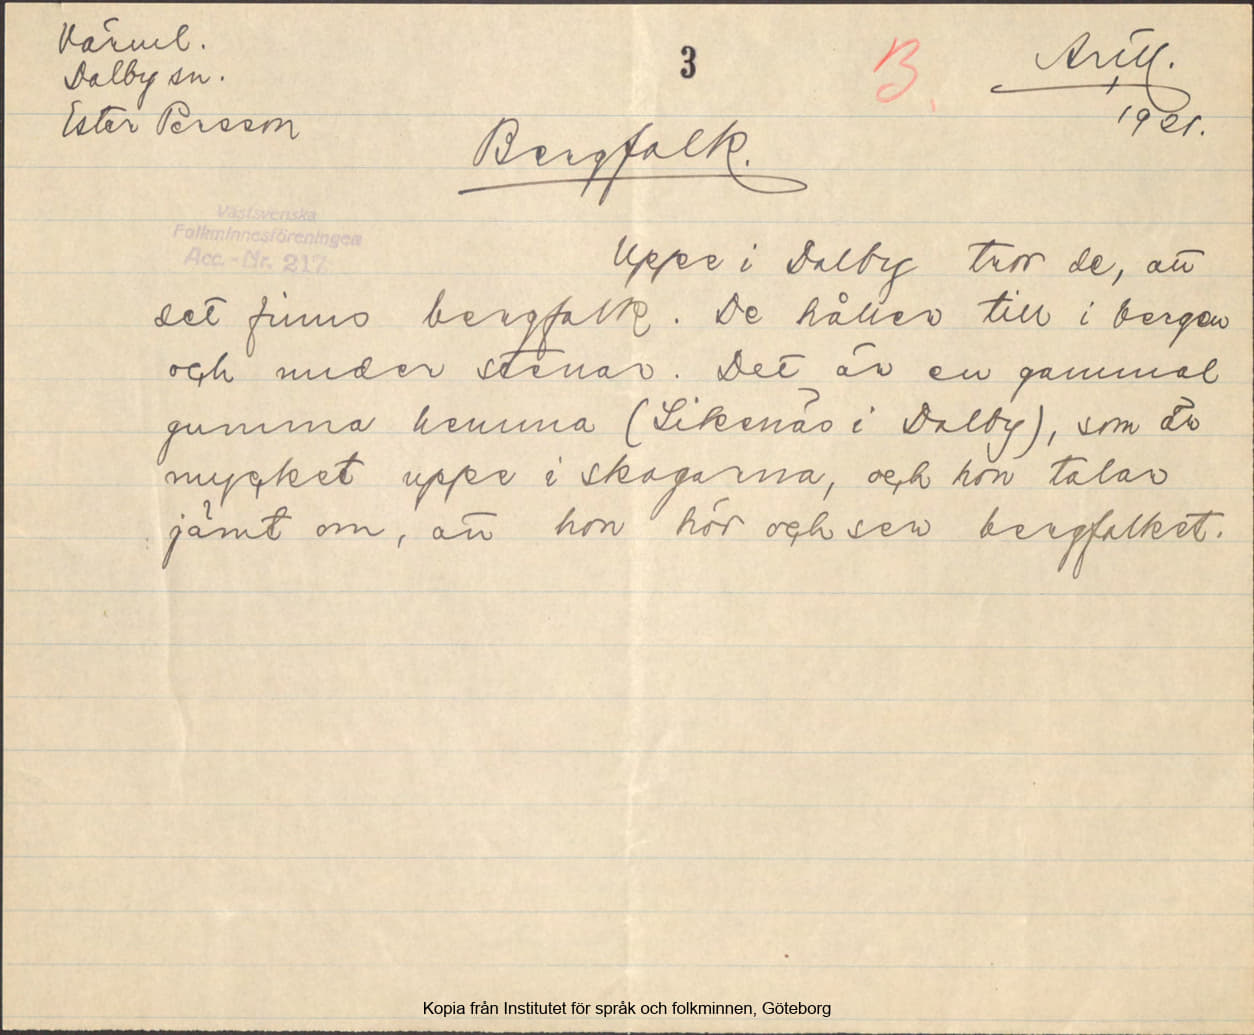 Värml.
Dalby sn.
Ester Persson
3
B.
Artill.
1921.
Bergfolk.
Västsvenska
Folkminnesföreningen
Acc.-Nr. 217
Uppe i Dalby tror de, att
det finns bergfolk. De håller till i bergen
och under stenar. Det är en gammal
gumma hemma (Likenäs i Dalby), som är
mycket uppe i skogarna, och hon talar
jämt om, att hon hör och ser bergfolket.
Kopia från Institutet för språk och folkminnen, Göteborg